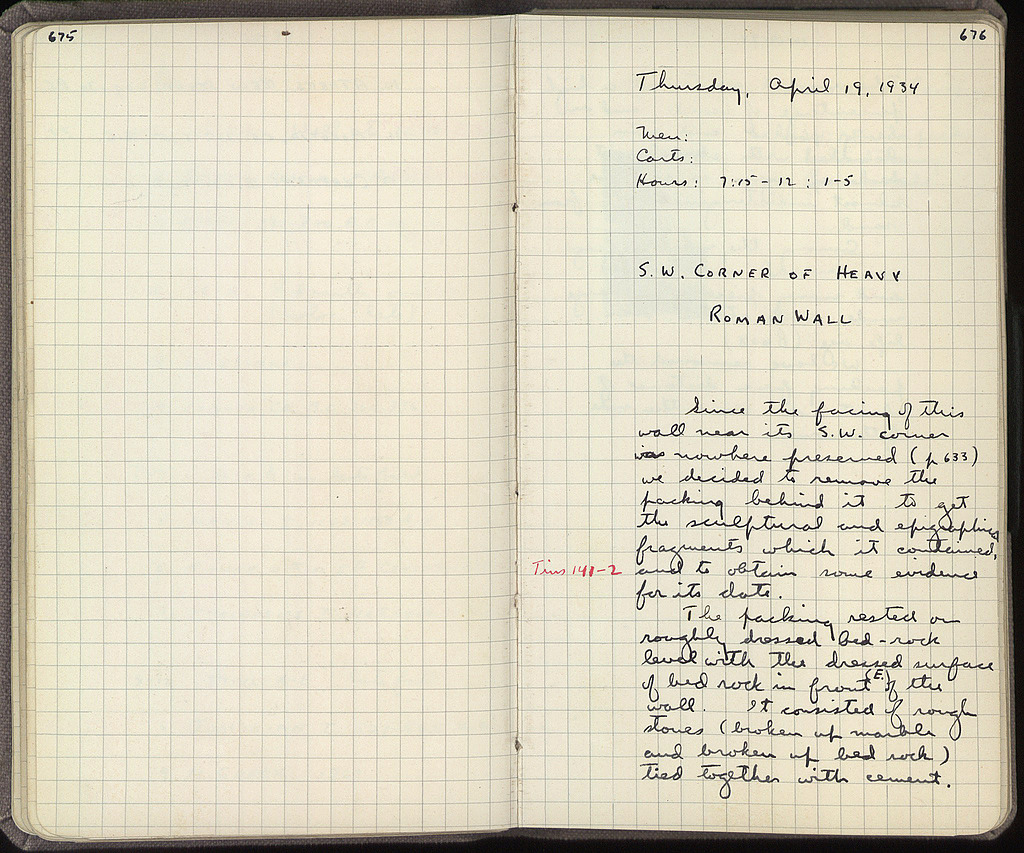 675
676
Thursday, April 19, 1934
Men:
Carts:
Hours: 7:15 - 12 : 1-5
S.W. CORNER OF HEAVY
ROMAN WALL
Since the facing of this
wall near its S.W. corner
is nowhere preserved (p 633)
we decided to remove the
packing behind it to get
the sculptural and epigraphical
fragments which it contained,
Tins 141-2 and to obtain some evidence
for its date.
The packing rested on
roughly dressed bed-rock
level with the dressed surface
of bed rock in front (E.) of the
wall. It consisted of rough
stones (broken up marble
and broken up bed rock)
tied together with cement.